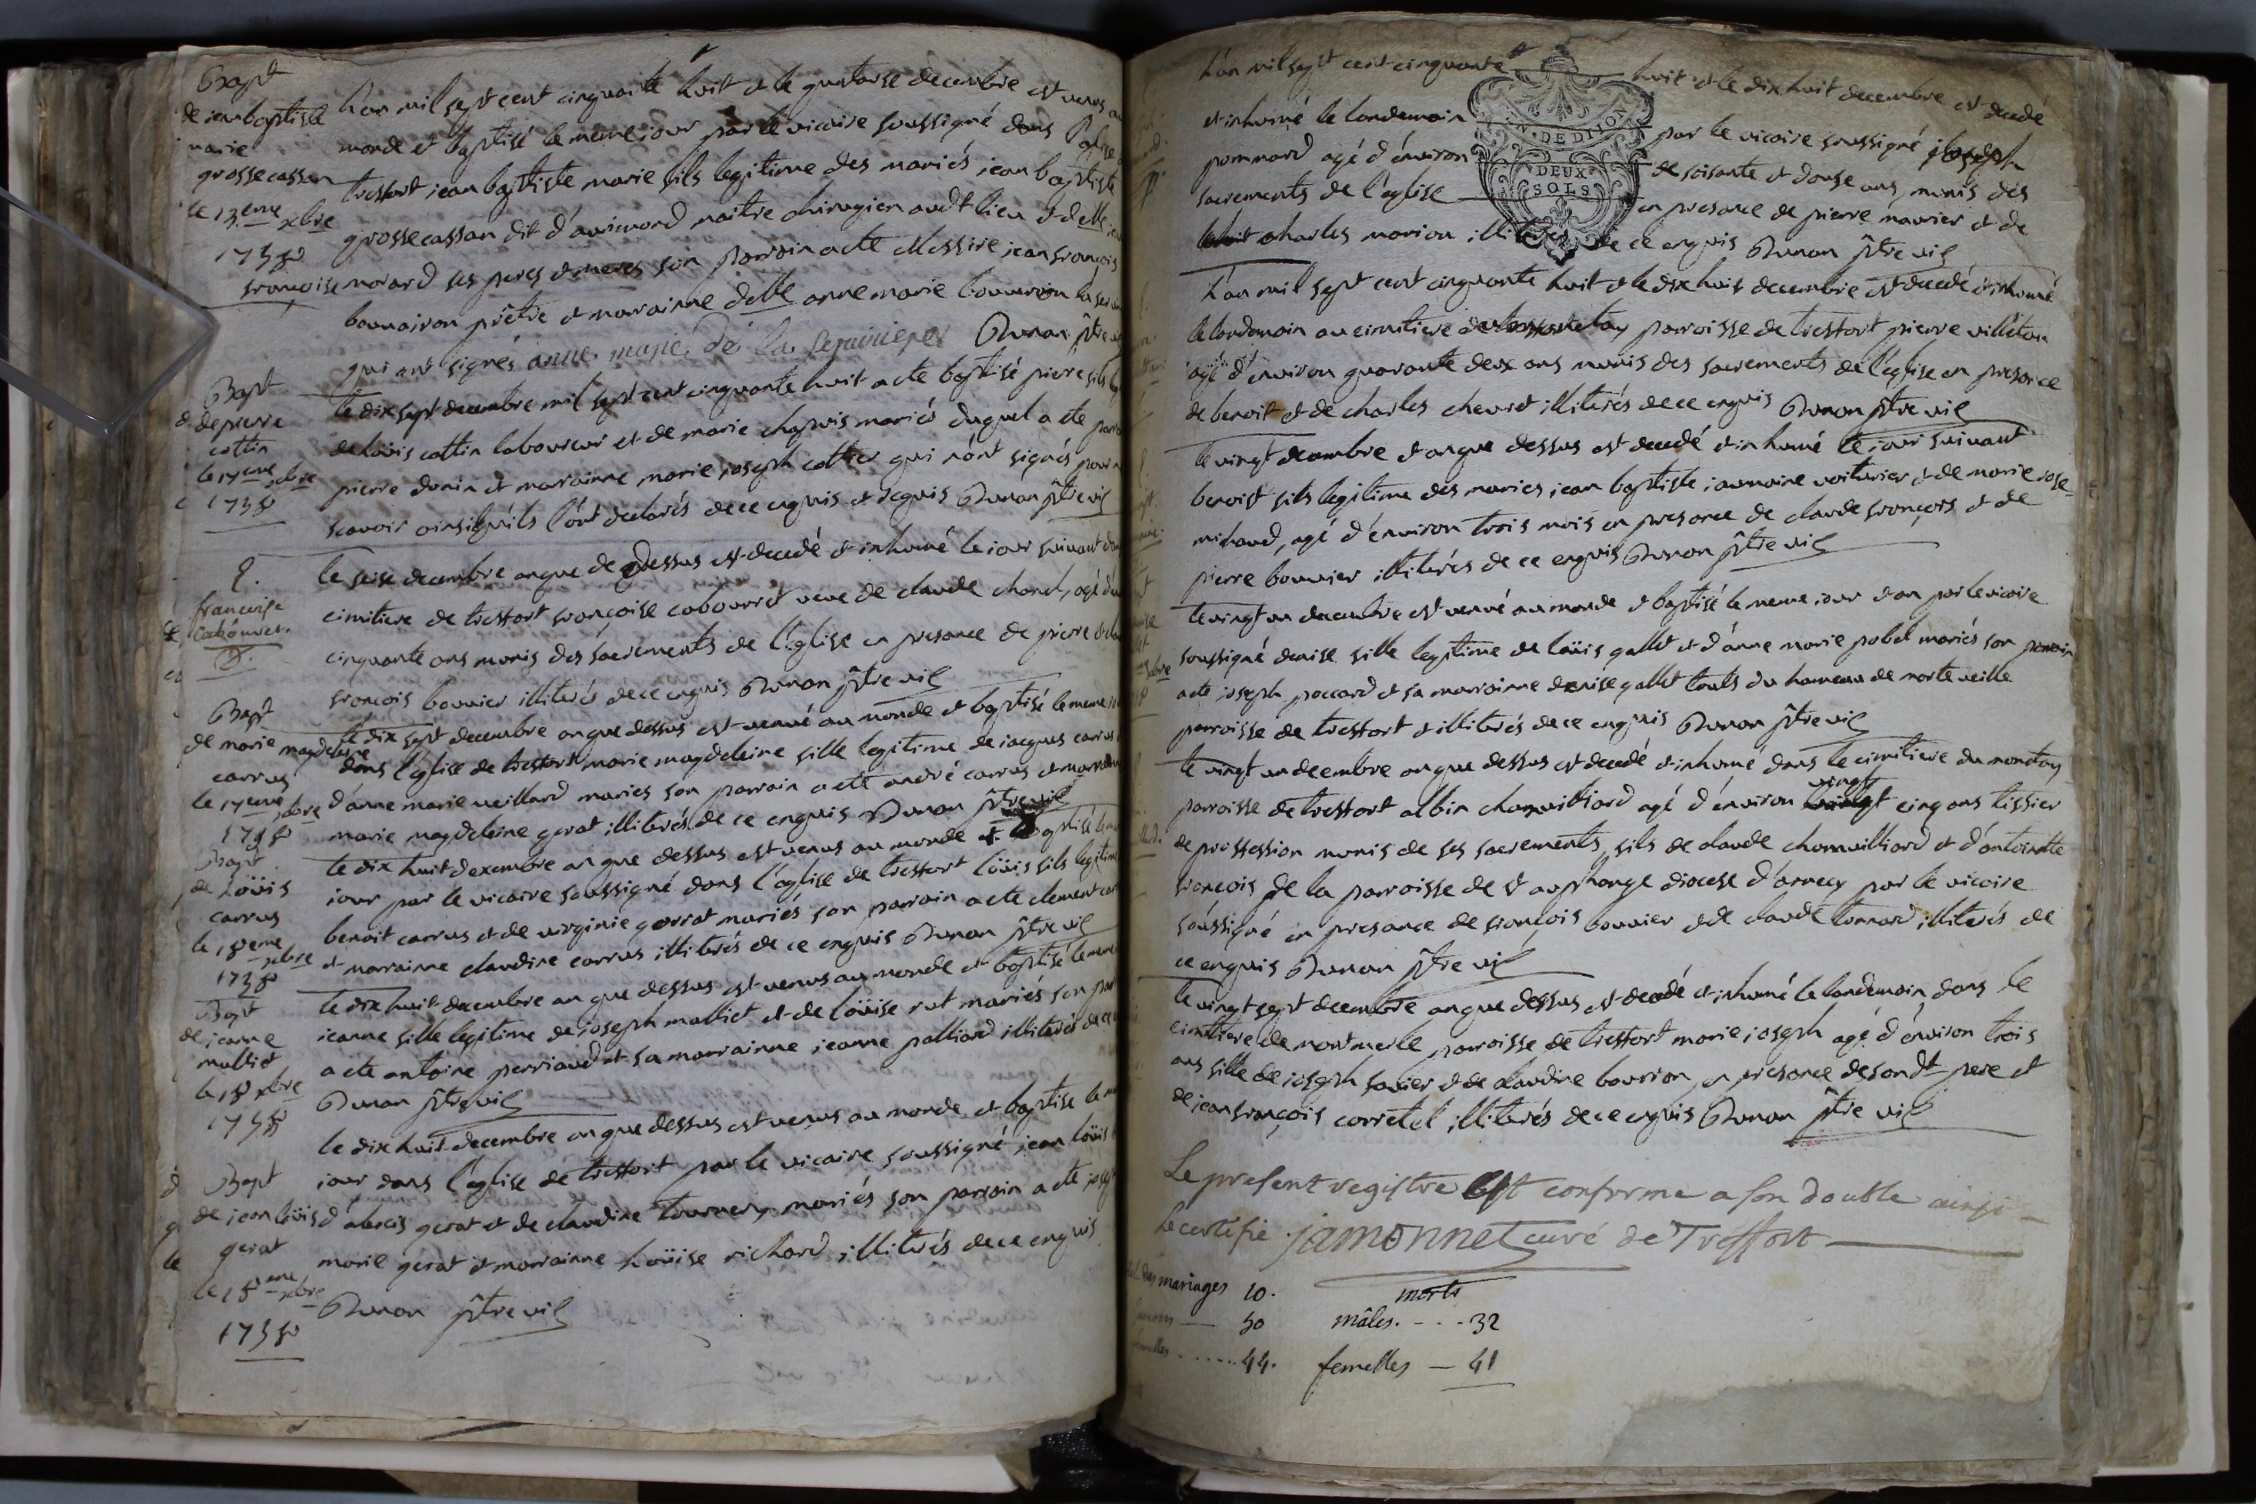 Bapt
de jean baptiste
marie
grossecassan
le 13eme xbre
1758
L'an mil sept cent cinquante huit et le quatorse decembre est venus au
monde et baptisé le meme jour par le vicaire soussigné dans l'eglise
tresfort jean baptiste marie fils legitime des mariés jean baptiste
grossecassan dit maitre chirugien audt lieu et delle
françoise morard ses peres et meres son parrain a ete Messire jean françois
prêtre et marrainne delle anne marie
qui ont signés anne marie de la Dunan ptre vic
Bapt
de pierre
cottin
le 17eme xbre
1758
le dix sept decembre mil sept cent cinquante huit a ete baptisé pierre fils
de loüis cottin laboureur et de marie chapuis mariés duquel a ete
pierre donin et marrainne marie joseph cottier qui n'ont signés pour ne
scavoir ainsi qu'ils l'ont declarés de ce enquis et requis Dunan ptre vic
françoise
Cabouvret
le seise decembre an que dessus est decedé et inhumé le jour suivant
cimitiere de tresfort françoise cabouvret veuve de claude chanel, agé
cinquante ans munis des sacrements de l'eglise en presance de pierre et de
françois bouvier illiterés de ce enquis Dunan ptre vic
Bapt
de marie magdeleine
carrus
le 17eme xbre
1758
le dix sept decembre an que dessus est venue au monde et baptisé le meme
dans l'eglise de tresfort marie magdeleine fille legitime de jacques carrus
d'anne marie veillard maries son parrain a eté andré carrus et marrainne
marie magdeleine gerat illiterés de ce enquis Dunan ptre vic
Bapt
de Loüis
carrus
le 18eme xbre
1758
le dix huit decembre an que dessus est venus au monde et baptisé le
jour par le vicaire soussigné dans l'eglise de tresfort loüis fils legitime
benoit carrus et de virginie gorrat mariés son parrain a ete clement
et marrainne claudine carrus illiterés de ce enquis Dunan ptre vic
Bapt
de jeanne
malliet
le 18 xbre
1758
le dix huit decembre an que dessus est venus au monde et baptisé le meme
jeanne fille legitime de joseph malliet et de loüise rat mariés son
a ete antoine perriaud et sa marrainne jeanne palliard illiterés de ce
Dunan ptre vic
Bapt
de jean loüis
gerat
le 18eme xbre
1758
le dix huit decembre an que dessus est venus au monde et baptise le
jour dans l'eglise de tresfort par le vicaire soussigné jean loüis
d'alexis gerat et de claudine tournery mariés son parrain a ete
marie gerat et marrainne loüise richard illiterés de ce enquis
Dunan ptre vic
L'an mil sept cent cinquante huit et le dix huit decembre est decedé
et inhumé le landemain par le vicaire soussigné joseph
pommard agé d'environ de soisante et douse ans, munis des
sacrements de l'eglise en presance de pierre maurier et de
charles morion illiterés de ce enquis Dunan ptre vic
GEN. DE DIJON
DEUX
SOLS
L'an mil sept cent cinquante huit et le dix huit decembre est decedé et inhumé
le landemain au cimitiere parroisse de tresfort pierre villeton
agé d'environ quarante deux ans munis des sacrements de l'eglise en presance
de benoit et de charles chevret illiterés de ce enquis Dunan ptre vic
le vingt decembre et an que dessus est decedé et inhumé le jour suivant
benoist fils legitime des maries jean baptiste voiturier et de marie rose
michaud, agé d'environ trois mois en presance de claude françois et de
pierre bouvier illiterés de ce enquis Dunan ptre vic
le vingt un decembre est venue au monde et baptisé le meme jour et an par le vicaire
soussigné denise fille legitime de loüis gallet et d'anne marie pobel mariés son parrain
a ete joseph poccard et sa marrainne denise gallet touts du hameau de morteveille
parroisse de tresfort et illiterés de ce enquis Dunan ptre vic
le vingt un decembre an que dessus est decedé et inhumé dans le cimitiere du montay
parroisse de tresfort albin chamvilliard agé d'environ vingt cinq ans tissier
de proffession munis de ses sacrements, fils de claude chamvilliard et d'antoinette
françois de la parroisse de st diocese d'annecy par le vicaire
soussigné en presance de françois bouvier et de claude tornard, illiterés de
ce enquis Dunan ptre vic
le vingt sept decembre an que dessus est decedé et inhumé le landemain dans le
cimitiere de montmerle parroisse de tresfort marie joseph agé d'environ trois
ans fille de joseph favier et de claudine bourrion, en presance de son dt pere et
de jean françois corretel illiterés de ce enquis Dunan ptre vic
Le present registre est conforme a son double ainsi
Le certifie jamonnet curé de Treffort
mariages 10.
50
44.
morts
mâles. - - - 32
femelles — 41